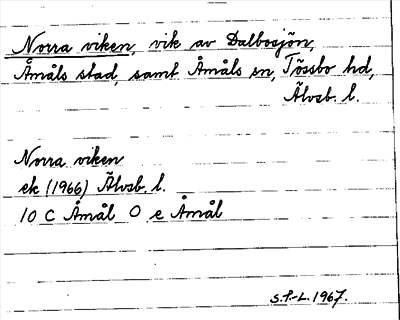 Norra viken, vik av Dalbosjön,
Åmåls stad, samt Åmåls sn, Tössbo hd,
Älvsb. l.
Norra viken
ek (1966) Älvsb. l.
10 C Åmål O e Åmål
S.P-L. 1967.